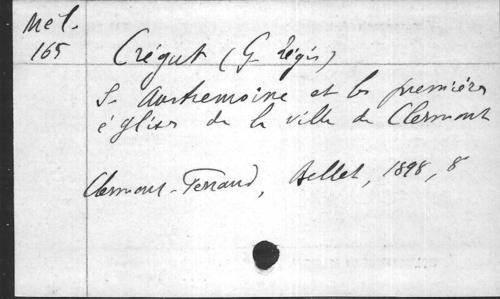 Mel.
165
Crégut (G- Régis)
S- Austremoine et les premières
églises de la ville de Clermont
Clermont-Ferrand, Bellet, 1898, 8°